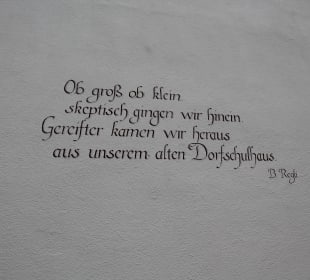 Ob groß ob klein
skeptisch gingen wir hinein.
Gereifter kamen wir heraus
aus unserem alten Dorfschulhaus.
B.